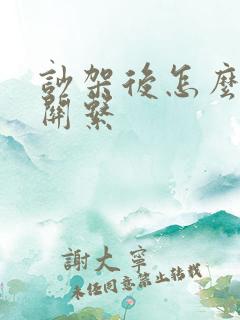 訬架後怎麼
關繫
謝大寧
未经同意禁止转载